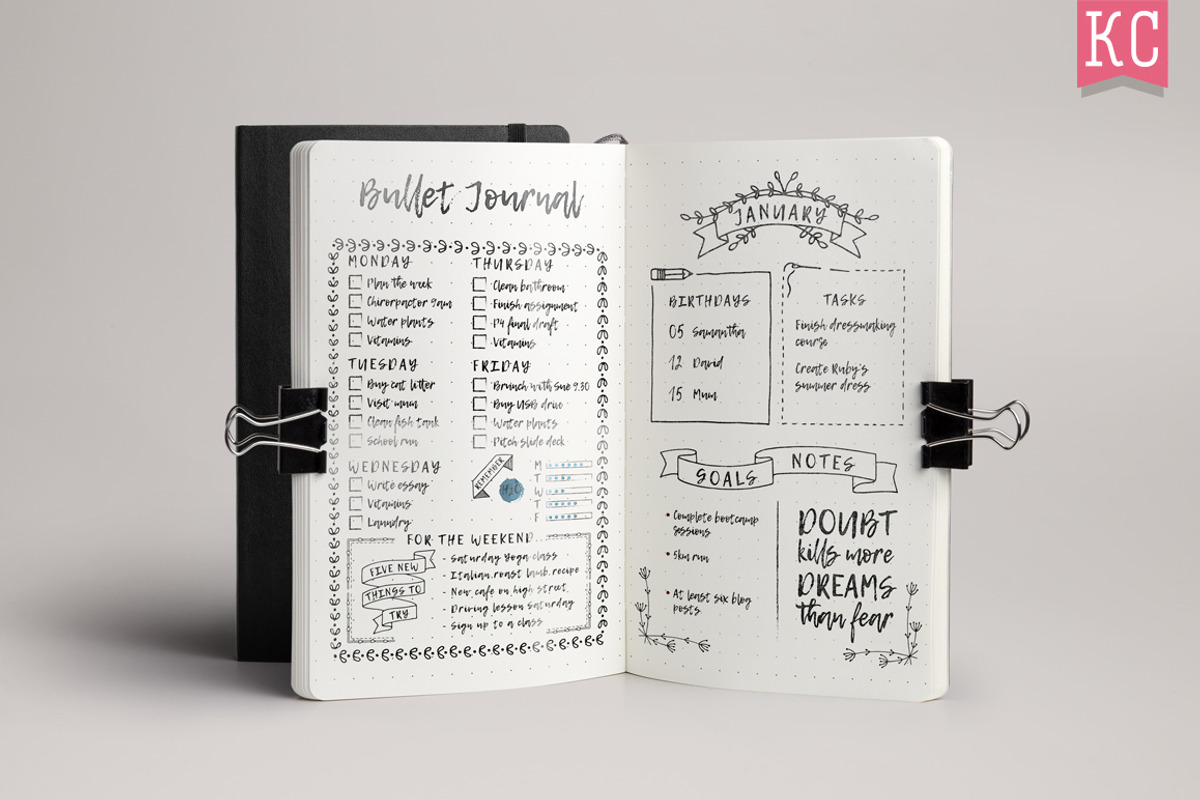 KC
Bullet Journal
MONDAY
Plan the week
Chirorpactor 9am
Water plants
Vitamins
TUESDAY
Buy cat litter
Visit mum
Clean fish tank
School run
WEDNESDAY
Write essay
Vitamins
Laundry
THURSDAY
Clean bathroom
Finish assignment
P4 final draft
Vitamins
FRIDAY
Brunch with Sue 9.30
Buy USB drive
Water plants
Pitch slide deck
REMEMBER
H2O
M
T
W
T
F
FOR THE WEEKEND
FIVE NEW
THINGS TO
TRY
- Saturday Yoga class
- Italian roast lamb recipe
- New cafe on high street
- Driving lesson Saturday
- Sign up to a class
JANUARY
BIRTHDAYS
05 Samantha
12 David
15 Mum
TASKS
Finish dressmaking
course
Create Ruby's
summer dress
GOALS
• Complete bootcamp
sessions
• 5km run
• At least six blog
posts
NOTES
DOUBT
kills more
DREAMS
than fear